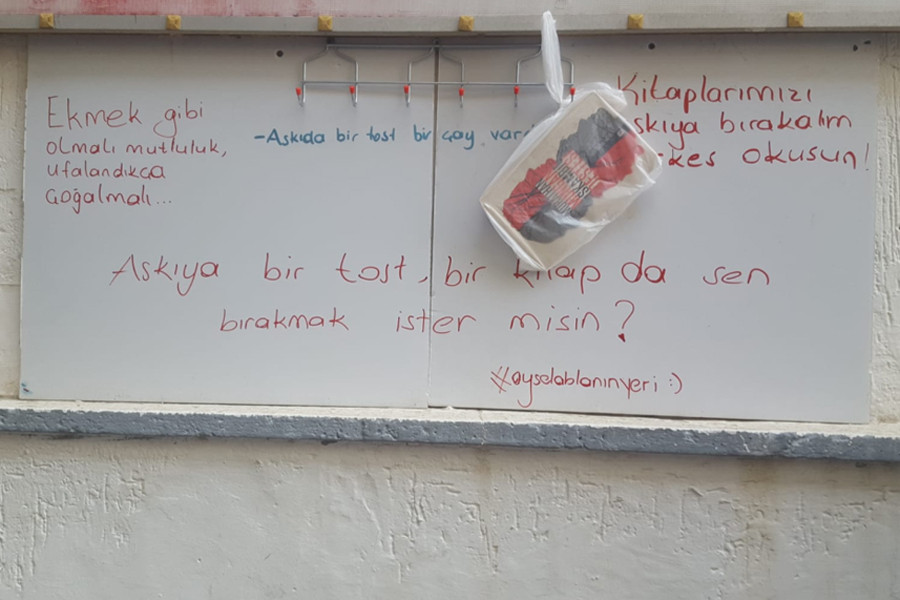 Ekmek gibi
olmalı mutluluk,
ufalandıkca
çoğalmalı...
-Askıda bir tost bir çay var
Kitaplarımızı
skıya bırakalım
kes okusun!
Askıya bir tost, bir kitap da sen
bırakmak ister misin?
#ayselablanınyeri :)